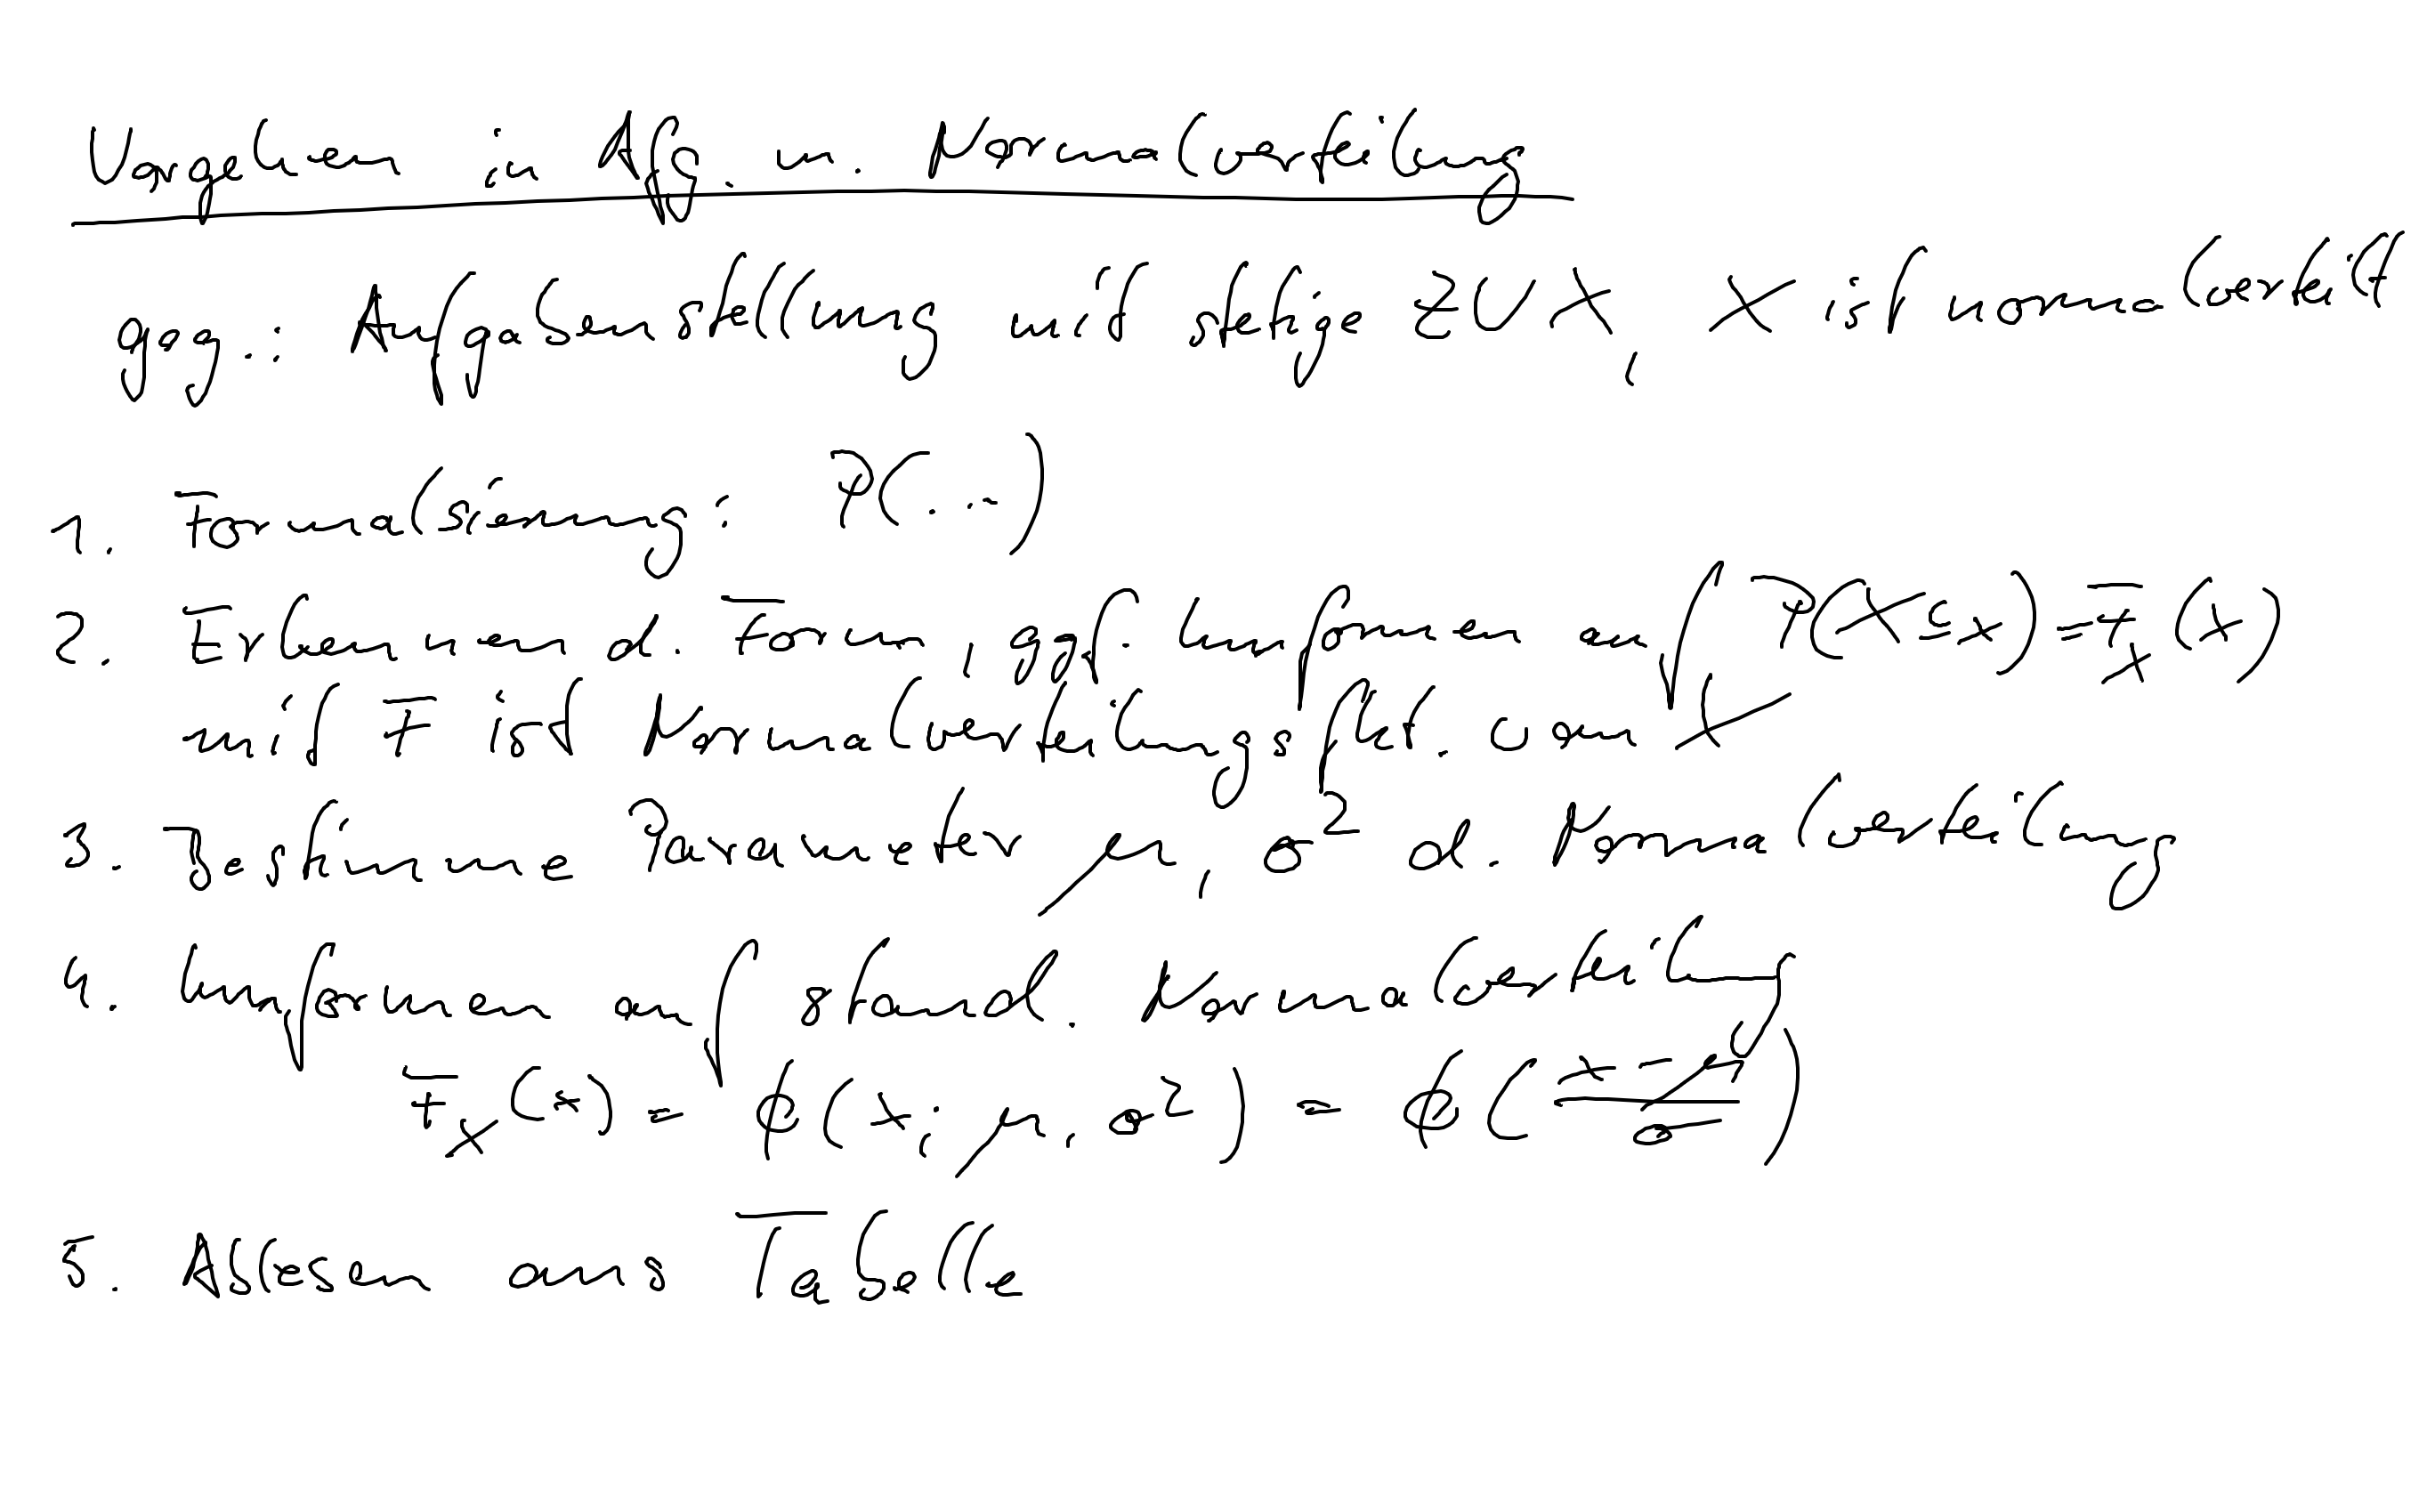 Vorgehen i. Afg. m. Normalverteilung
geg.: Aufgabenstellung mit stetige ZV X, X ist normalverteilt
1. Formalisierung: P(...)
2. Erkennen d. Form, ggf. umformen auf P(X≤x)=F_X(x)
mit F ist Normalverteilungsfkt. von X
3. Bestimme Parameter μ, σ² d. Normalverteilung
4. Umformen auf stand. Normalverteilung
F_X(x) = ϕ(x; μ, σ²) = ϕ((x-μ)/σ)
5. Ablesen aus Tabelle